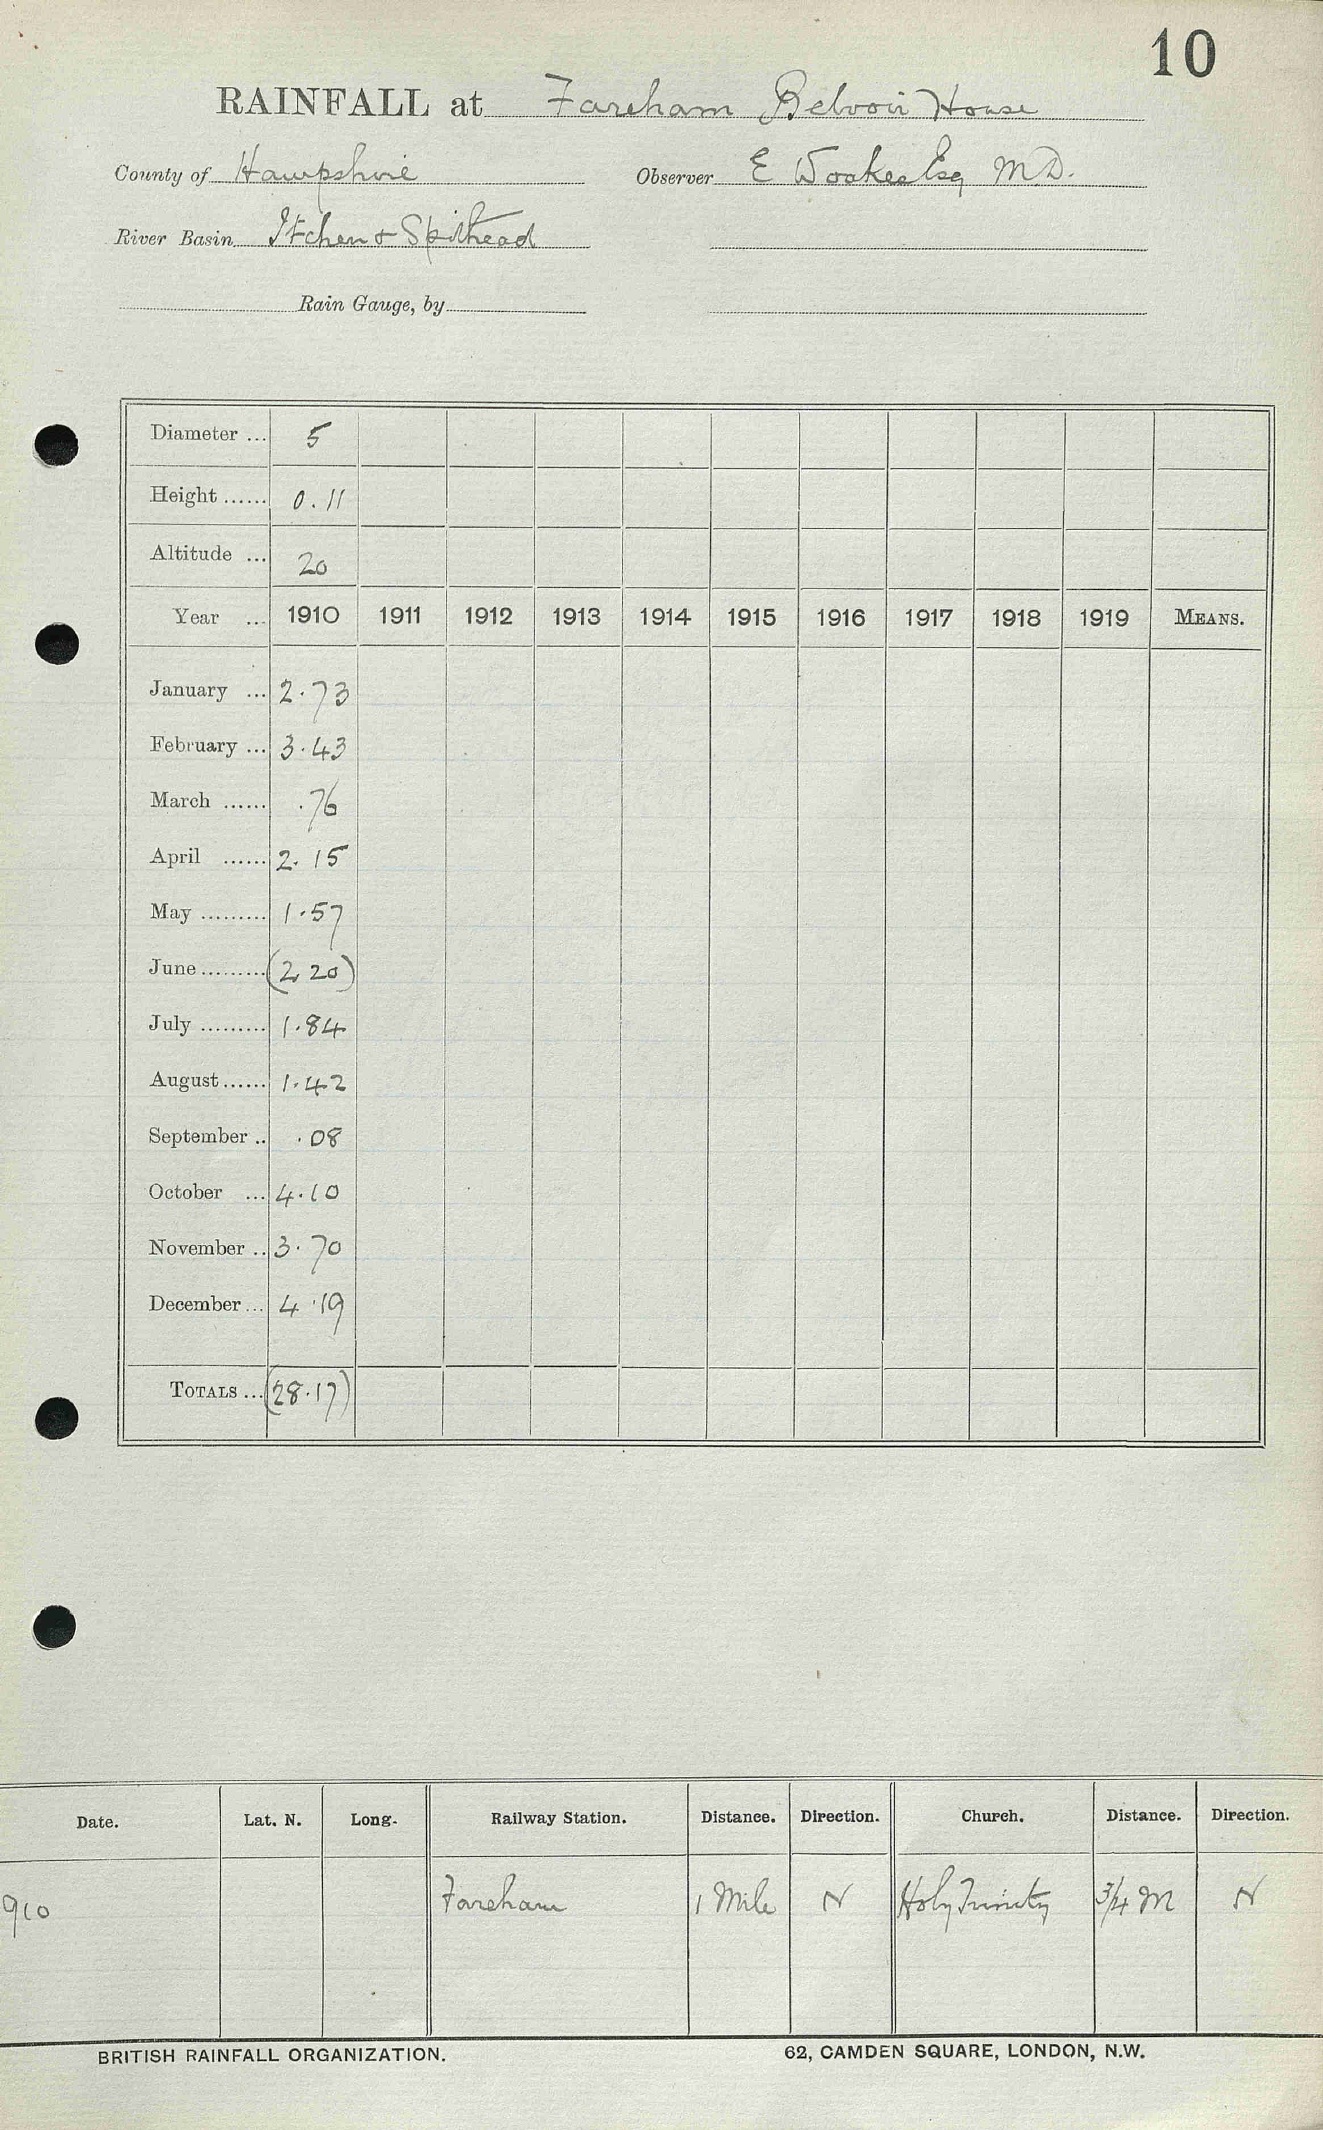 10
RAINFALL at Fareham Belvoir House
County of Hampshire Observer E Woakes Esq M.D.
River Basin Itchen & Spithead
Rain Gauge, by
Diameter ... 5
Height ...... 0.11
Altitude ... 20
Year ... 1910 1911 1912 1913 1914 1915 1916 1917 1918 1919 MEANS.
January ... 2.73
February ... 3.43
March ...... .76
April ...... 2.15
May ......... 1.57
June ......... (2 20)
July ......... 1.84
August ...... 1.42
September .. .08
October ... 4.10
November .. 3.70
December ... 4.19
TOTALS ... (28.17)
Date. Lat. N. Long. Railway Station. Distance. Direction. Church. Distance. Direction.
910 Fareham 1 Mile N Holy Trinity 3/4 M N
BRITISH RAINFALL ORGANIZATION. 62, CAMDEN SQUARE, LONDON, N.W.